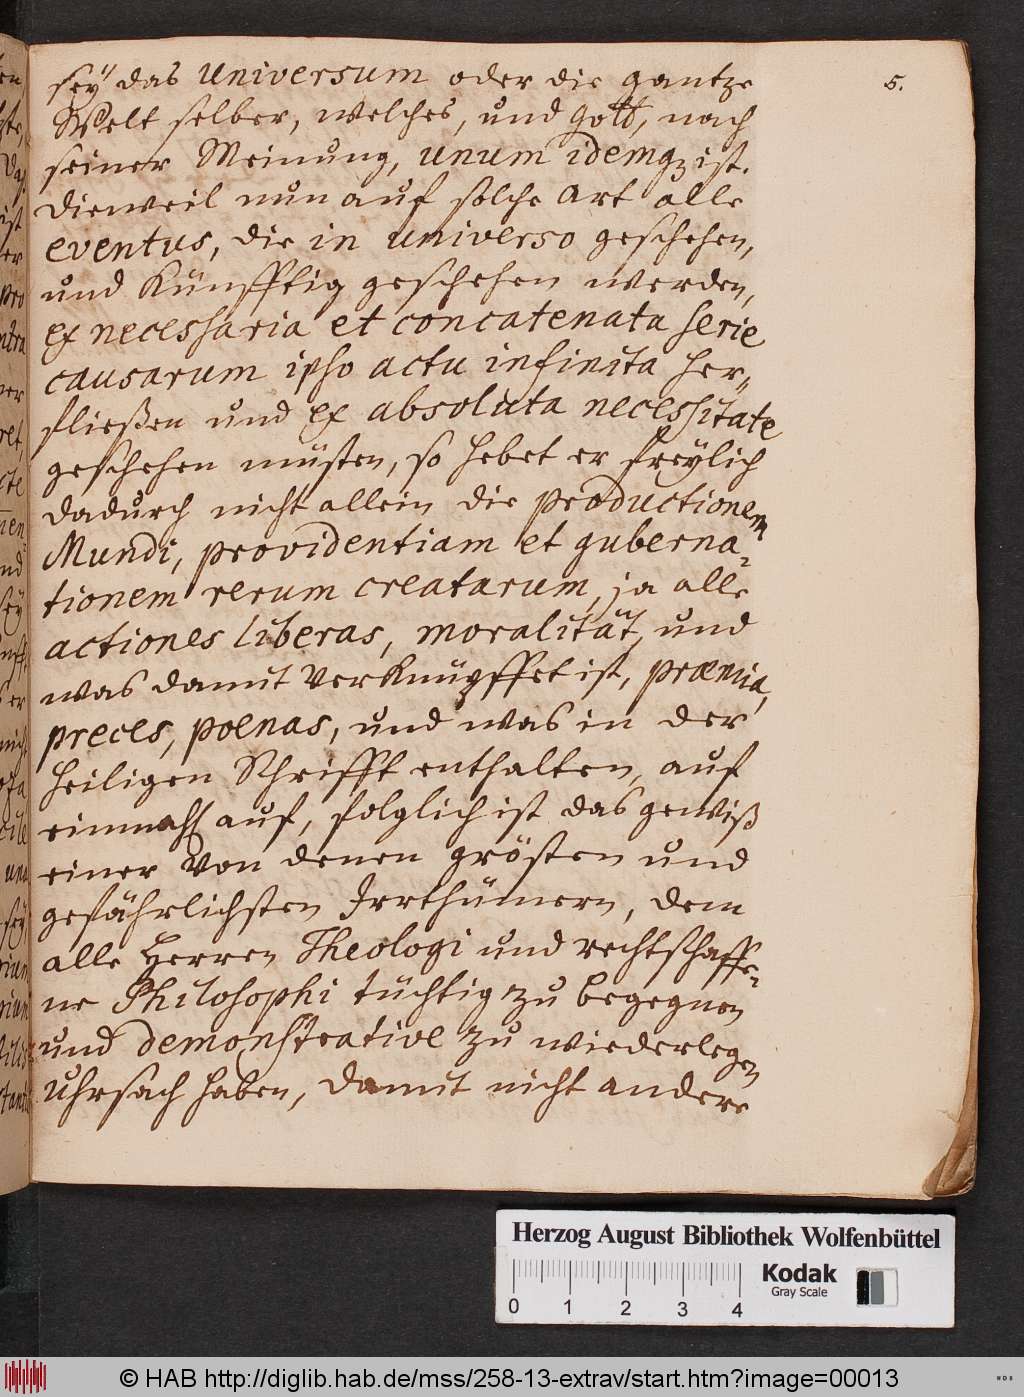 5.
sey das Universum oder die gantze
Welt selber, welches, und Gott, nach
seiner Meinung, unum idemq₃ ist.
Dieweil nun auf solche Art alle
eventus, die in universo geschehen,
und Künfftig geschehen werden,
ex necessaria et concatenata serie
causarum ipso actu infinita her„
fließen und ex absoluta necessitate
geschehen müsten, so hebet er freylich
dadurch nicht allein die productionem
Mundi, providentiam et guberna„
tionem rerum creatarum, ja alle
actiones liberas, moralität, und
was damit verknüpffet ist, præmia,
preces, poenas, und was in der
Heiligen Schrifft enthalten, auf
einmahl auf, folglich ist das gewiß
einer von denen grösten und
gefährlichsten Irrthümern, dem
alle Herren Theologi und rechtschaffe„
ne Philosophi tüchtig zu begegnen
und demonstrative zu wiederlegen
Uhrsach haben, damit nicht andere
Herzog August Bibliothek Wolfenbüttel
Kodak
Gray Scale
0 1 2 3 4
© HAB http://diglib.hab.de/mss/258-13-extrav/start.htm?image=00013